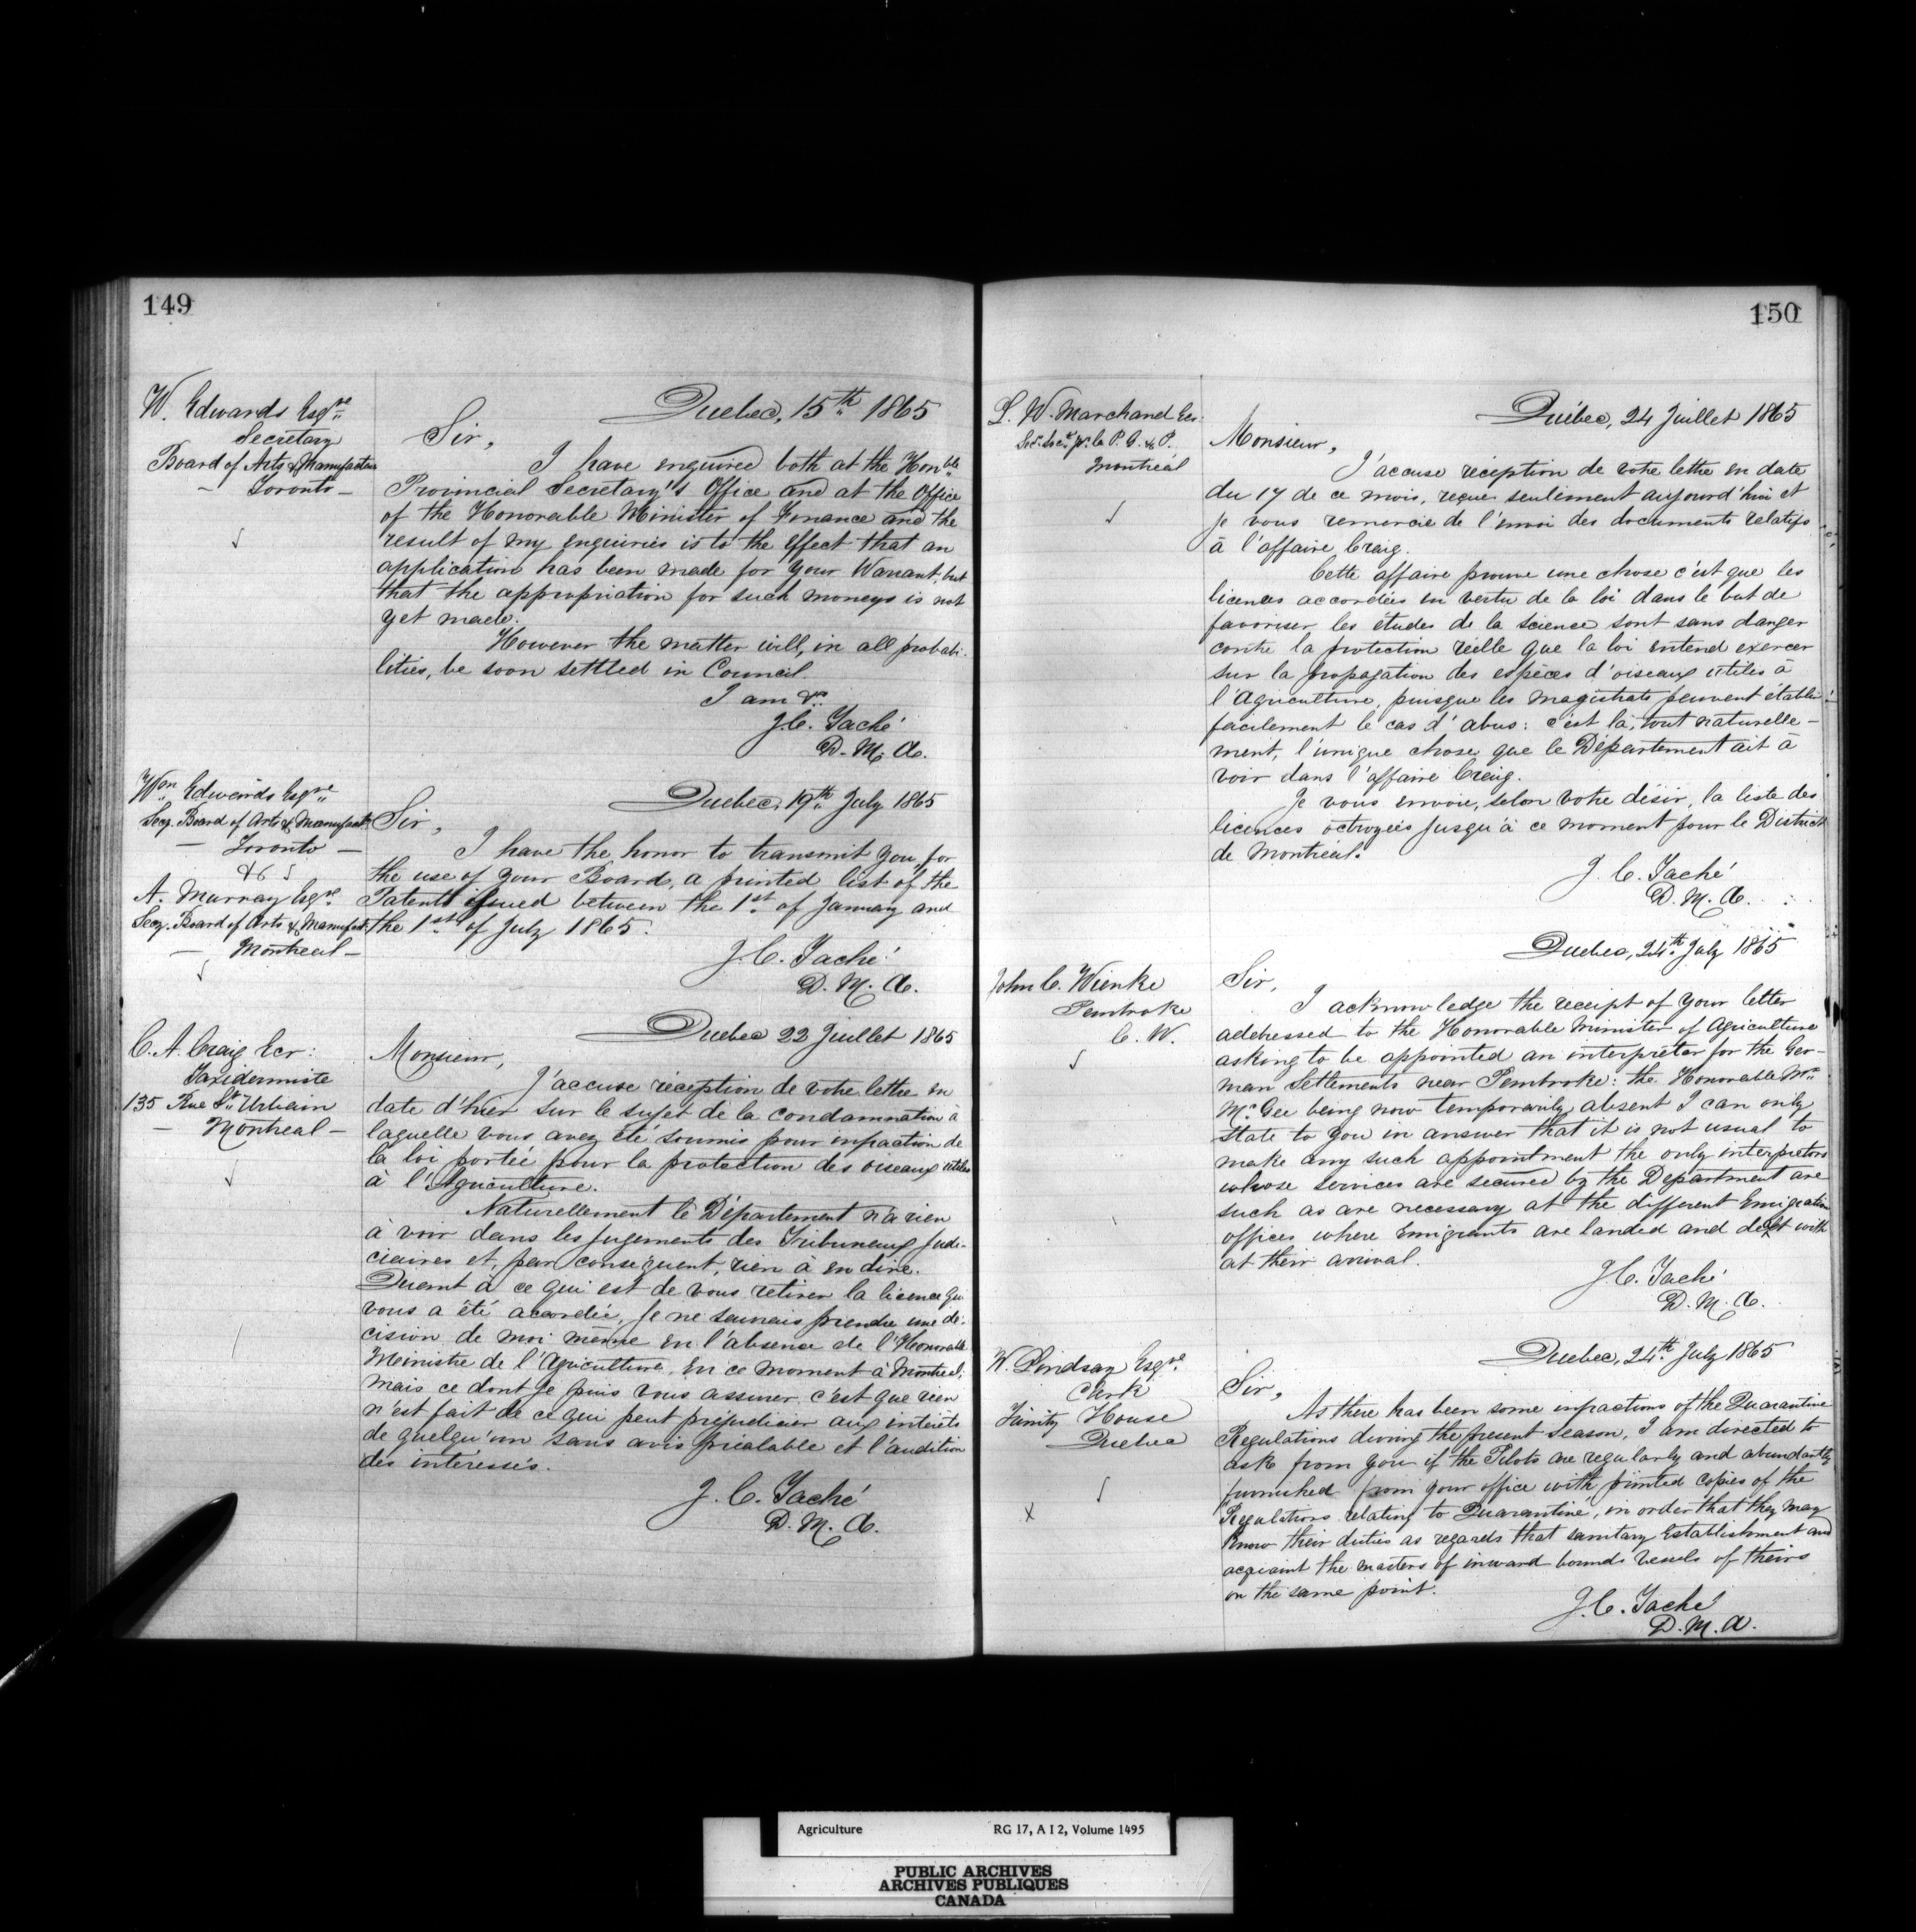 149
W. Edwards Esqre
Secretary
Board of Arts & Manufactures
– Toronto –
Quebec, 15th 1865
Sir,
I have enquired both at the Honble
Provincial Secretary's Office and at the Office
of the Honorable Minister of Finance and the
result of my enquiries is to the effect that an
application has been made for your Warrant but
that the appropriation for such moneys is not
yet made.
However the matter will, in all probabi-
lities, be soon settled in Council.
I am &c
J.C. Taché
D. M. A.
Wm Edwards Esqre
Secy. Board of Arts & Manufact.
– Toronto –
& to
A. Murray Esqre
Secy. Board of Arts & Manufact.
– Montreal –
Quebec, 19th July 1865
Sir,
I have the honor to transmit you for
the use of your Board, a printed list of the
Patents issued between the 1st of January and
the 1st of July 1865.
J. C. Taché
D. M. A.
C. A. Craig Ecr:
Taxidermiste
135 Rue St Urbain
– Montreal –
Quebec 22 Juillet 1865
Monsieur,
J'accuse réception de votre lettre en
date d'hier sur le sujet de la condamnation à
laquelle vous avez été soumis pour infraction de
la loi portée pour la protection des oiseaux utiles
à l'Agriculture.
Naturellement le Département n'a rien
à voir dans les jugements des Tribuneaux judi-
ciaires et, par conséquent, rien à en dire.
Quant à ce qui est de vous retirer la licence qui
vous a été accordée, je ne saurais prendre une dé-
cision de moi même en l'absence de l'Honorable
Ministre de l'Agriculture, en ce moment à Montréal;
mais ce dont je puis vous assurer c'est que rien
n'est fait de ce qui peut préjudicier aux intérêts
de quelqu'un sans avis préalable et l'audition
des intéressés.
J. C. Taché
D. M. A.
150
L. W. Marchand Ecr.
Montréal
Québec, 24 Juillet 1865
Monsieur,
J'accuse réception de votre lettre en date
du 17 de ce mois, reçue seulement aujourd'hui et
je vous remercie de l'envoi des documents relatifs
à l'affaire Craig.
Cette affaire prouve une chose c'est que les
licences accordées en vertu de la loi dans le but de
favoriser les études de la science sont sans danger
contre la protection réelle que la loi entend exercer
sur la propagation des espèces d'oiseaux utiles à
l'Agriculture, puisque les magistrats peuvent établir
facilement le cas d'abus: c'est là, tout naturelle-
ment, l'unique chose que le Département ait à
voir dans l'affaire Craig.
Je vous envoie, selon votre désir, la liste des
licences octroyées jusqu'à ce moment pour le District
de Montréal.
J. C. Taché
D. M. A.
John C. Wienke
Pembroke
C. W.
Quebec, 24th July 1865
Sir,
I acknowledge the receipt of your letter
addressed to the Honorable Minister of Agriculture
asking to be appointed an interpreter for the Ger-
man Settlements near Pembroke: the Honorable Mr
McGee being now temporarily absent I can only
state to you in answer that it is not usual to
make any such appointment the only interpreters
whose services are secured by the Department are
such as are necessary at the different Emigration
offices where Emigrants are landed and dealt with
at their arrival.
J. C. Taché
D. M. A.
W. Lindsay Esqre.
Clerk
Trinity House
Quebec
x
Quebec, 24th July 1865
Sir,
As there has been some infractions of the Quarantine
Regulations during the present season, I am directed to
ask from you if the Pilots are regularly and abundantly
furnished from your office with printed copies of the
Regulations relating to Quarantine, in order that they may
know their duties as regards that sanitary Establishment and
acquaint the masters of inward bound vessels of theirs
on the same point.
J. C. Taché
D. M. A.
Agriculture RG 17, A I 2, Volume 1495
PUBLIC ARCHIVES
ARCHIVES PUBLIQUES
CANADA